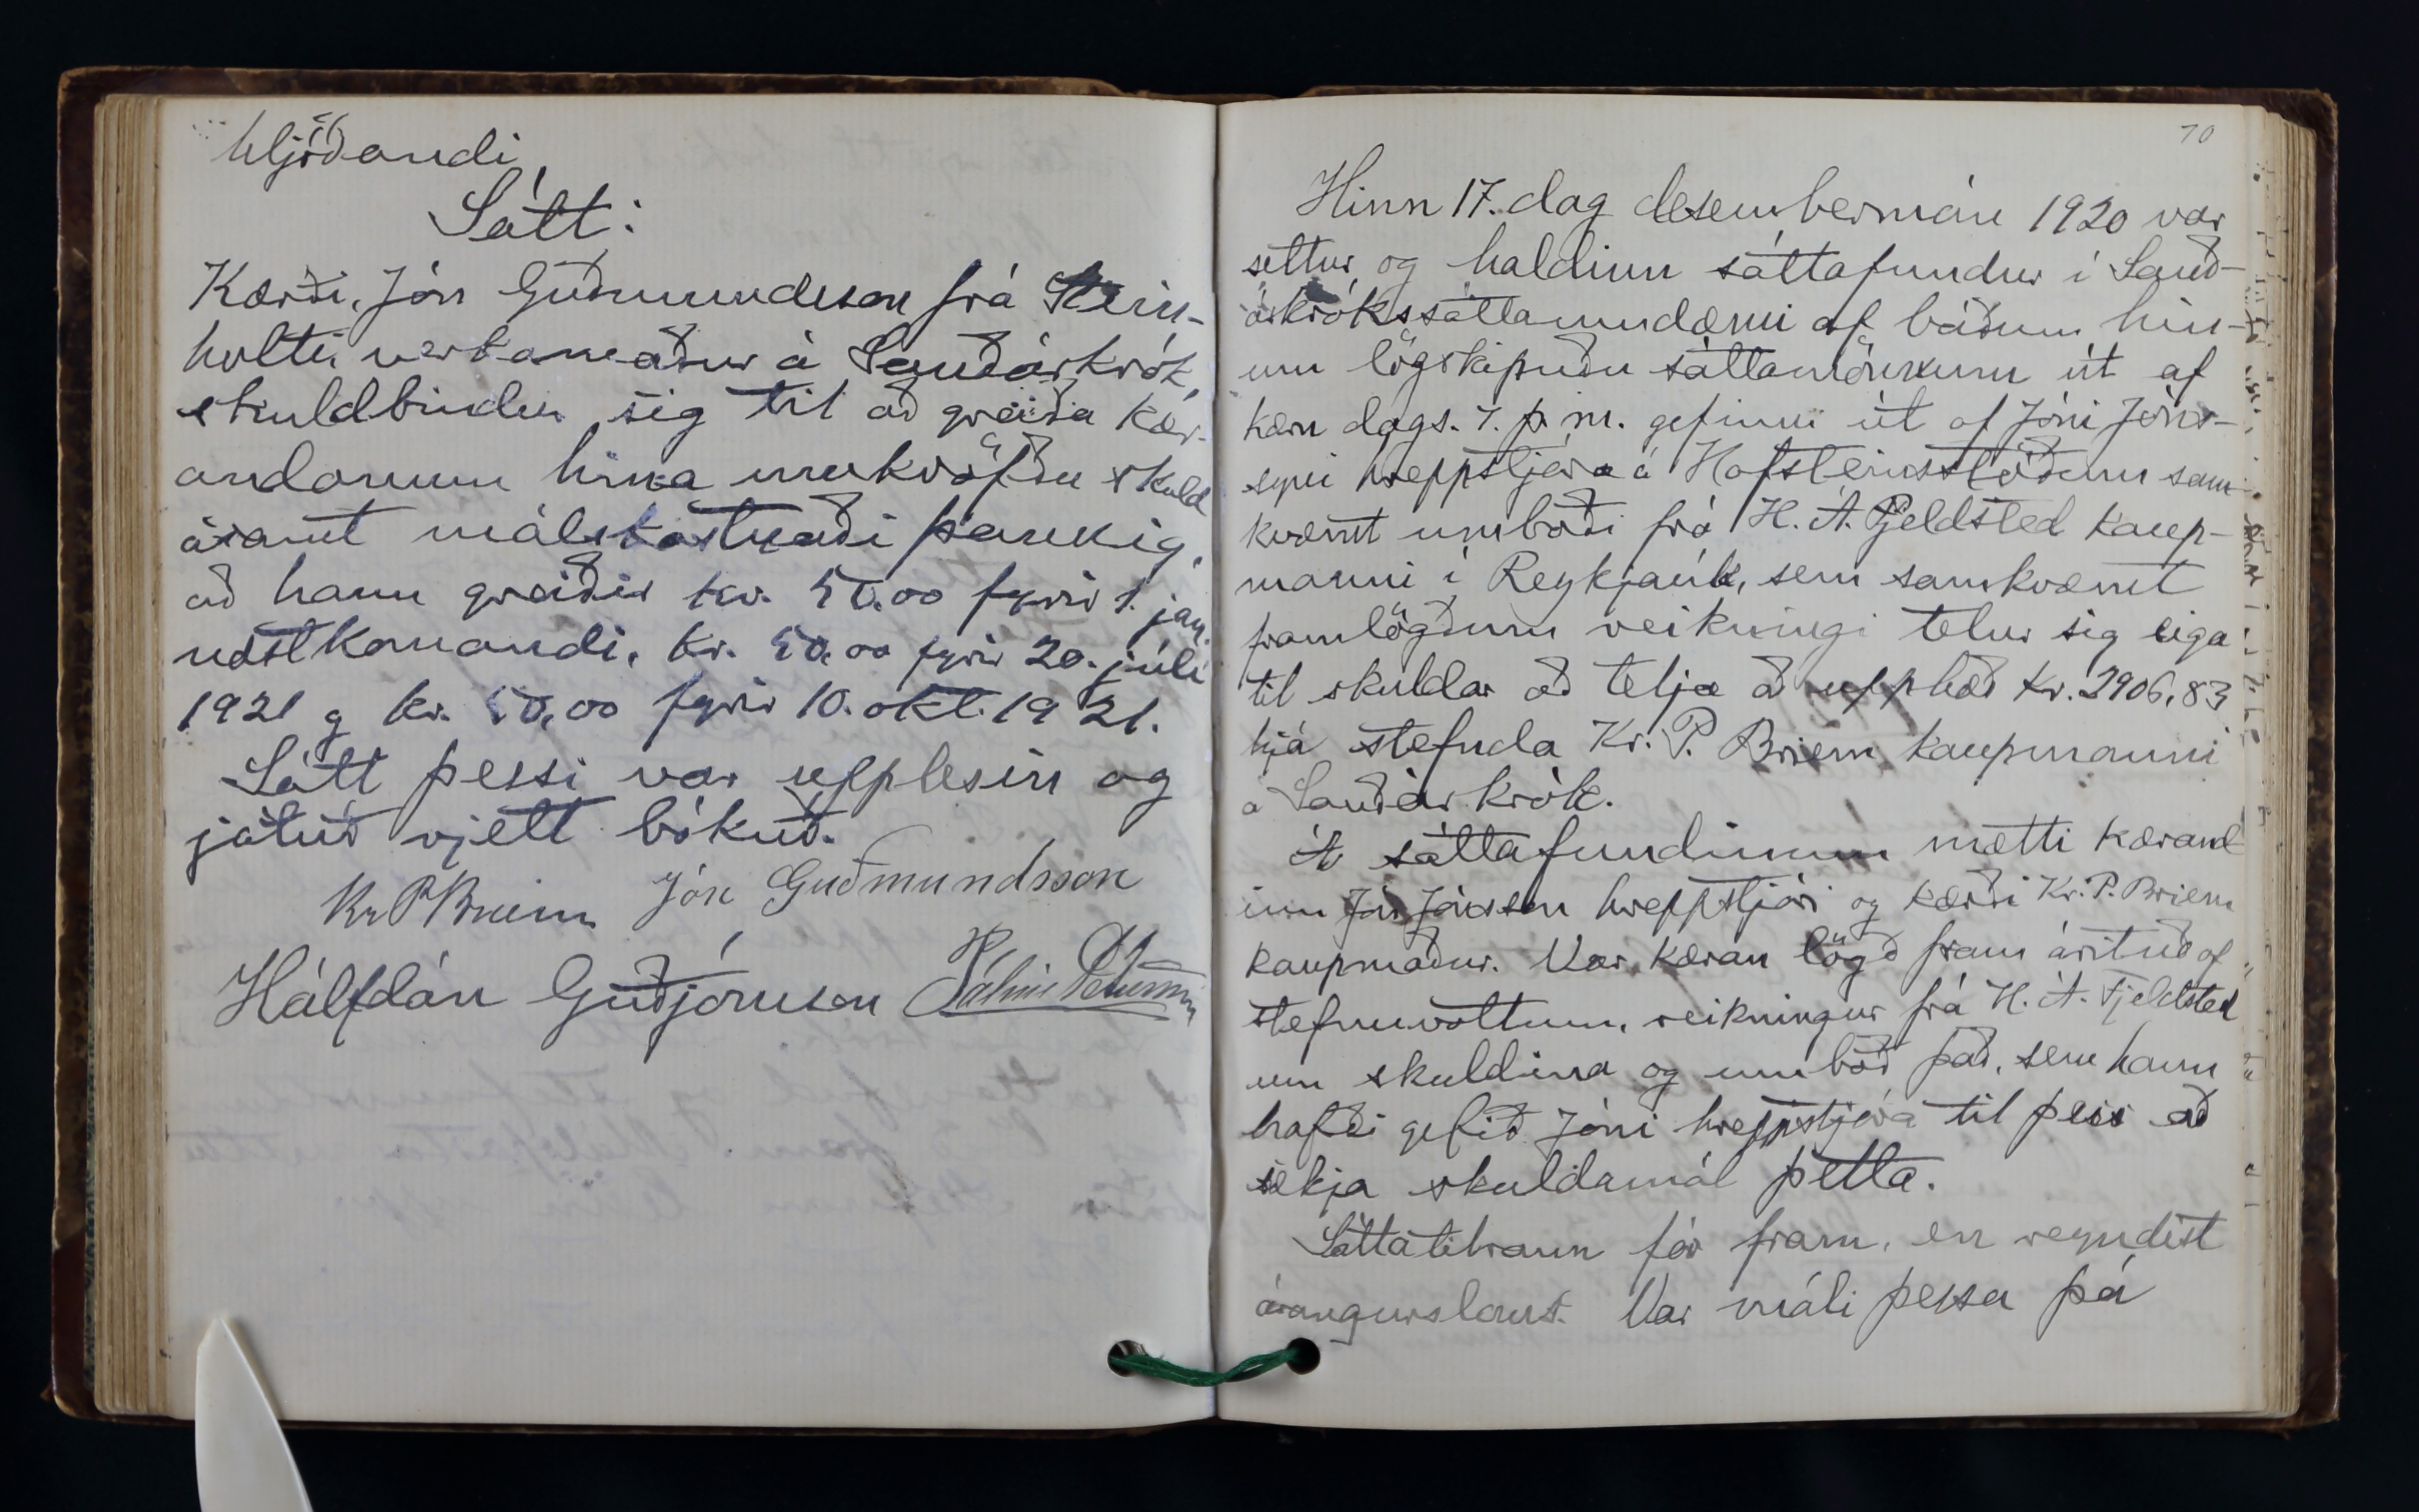 hljóðandi
Sátt:
Kærði, Jón Guðmundsson frá Stein-
holti verkamaður á Sauðárkrók,
skuldbindur sig til að greiða kær-
andanum hina umkröfðu skuld
ásamt málskostnaði þannig,
að hann greiðir kr. 50.00 fyrir 1. jan.
næstkomandi, kr. 50,00 fyrir 20. júlí
1921 og kr. 50,00 fyrir 10. okt. 1921.
Sátt þessi var upplesin og
játuð rjett bókuð.
Kr P Briem Jón Guðmundsson
Hálfdán Guðjónsson Pálmi Pétursson
70
Hinn 17. dag desembermán 1920 var
settur og haldinn sáttafundur í Sauð-
árkrókssáttaumdæmi af báðum hin-
um lögskipuðu sáttamönnum út af
kæru dags. 7. þ. m. gefinni út af Jóni Jóns-
syni hreppstjóra á Hafsteinsstöðum sam-
kvæmt umboði frá H. Á. Fjeldsted kaup-
manni í Reykjavík, sem samkvæmt
framlögðum reikningi telur sig eiga
til skuldar að telja að upphæð kr. 2906,83
hjá stefnda Kr. P. Briem kaupmanni
á Sauðárkrók.
Á sáttafundinum mætti kærand
inn Jón Jónsson hreppstjóri og kærði Kr. P. Briem
kaupmaður. Var kæran lögð fram árituð af
stefnuvottum, reikningur frá H. Á. Fjeldsted
um skuldina og umboð það, sem hann
hafði gefið Jóni hreppstjóra til þess að
sækja skuldamál þetta.
Sáttatilraun fór fram, en reyndist
árangurslaus. Var máli þessu þá